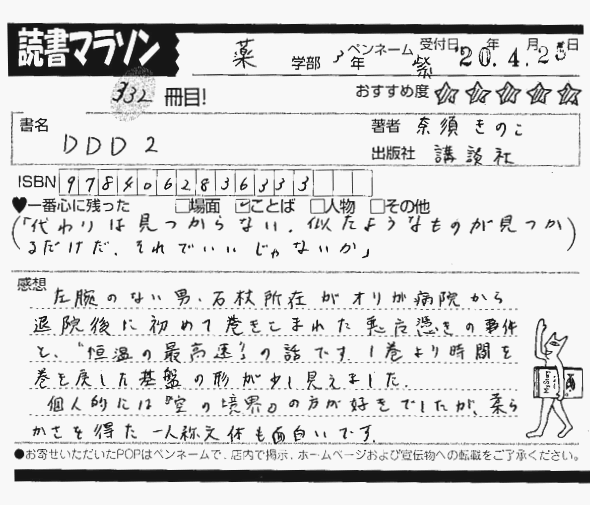 読書マラソン
薬 学部 3年 ペンネーム 紫 受付日 '20年.4月.25日
332 冊目! おすすめ度 ☆☆☆☆☆
書名 DDD 2
著者 奈須きのこ
出版社 講談社
ISBN 9784062836333
♥一番心に残った □場面 ☑ことば □人物 □その他
(「代わりは見つからない。似たようなものが見つか
るだけだ、それでいいじゃないか」)
感想 左腕のない男、石杖所在がオリガ病院から
退院後に初めて巻きこまれた悪魔憑きの事件
と、"恒温の最高速"の話です。1巻より時間を
巻き戻した基盤の形が少し見えました。
個人的には『空の境界』の方が好きでしたが、柔ら
かさを得た一人称文体も面白いです。
●お寄せいただいたPOPはペンネームで、店内で掲示、ホームページおよび宣伝物への転載をご了承ください。